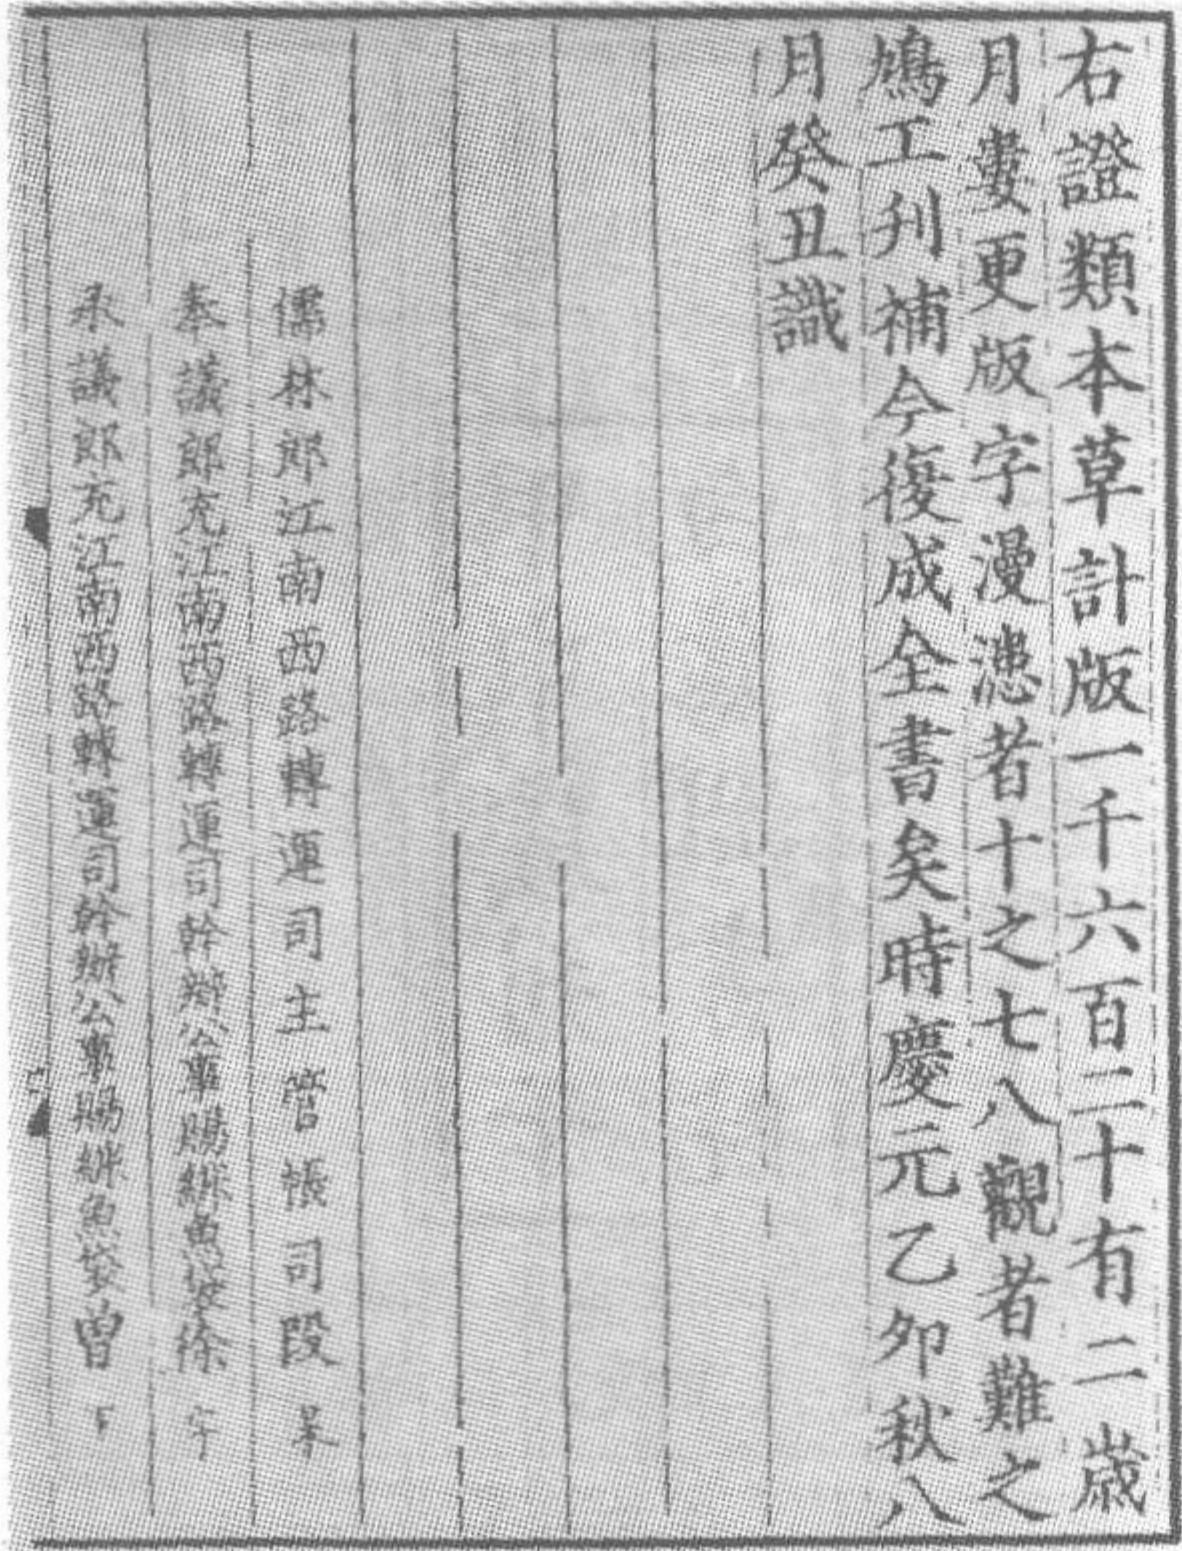 右證類本草計版一千六百二十有二歲
月婁更版字漫漶者十之七八觀者難之
鳩工刋補今復成全書矣時慶元乙卯秋八
月癸丑識
儒林郎江南西路轉運司主管帳司段杲
奉議郎充江南西路轉運司幹辦公事賜緋魚袋徐宇
承議郎充江南西路轉運司幹辦公事賜緋魚袋曾卞